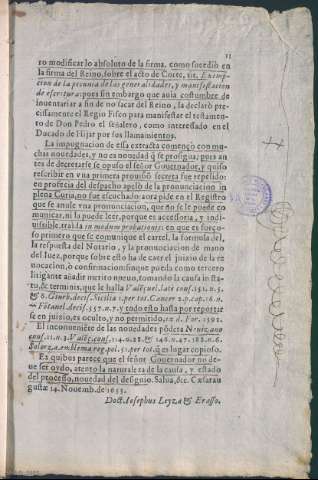 11
ro modificar lo absoluto de la firma, como sucedió en
la firma del Reino, sobre el acto de Corte, tit. Exemp-
cion de la pecunia de las generalidades, y manifestacion
de escritura: pues sin embargo que auia costumbre de
inuentariar a fin de no sacar del Reino, la declarò pre-
cissamente el Regio Fisco para manifestar el testamen-
to de Don Pedro el señalero, como interessado en el
Ducado de Hijar por sus llamamientos.
La impugnacion de essa extracta començò con mu-
chas nouedades, y no es nouedad q̃ se prosigua; pues an-
tes de decretarse se opuso el señor Gouernador, y quiso
rescribir en vna primera prouisiõ secreta fue repelido:
en profecia del despacho apelò de la pronunciacion in
plena Curia, no fue escuchado: aora pide en el Registro
que se anule vna pronunciacion, que no se le puede co-
municar, ni la puede leer, porque es accessoria, y indi-
uissible, traida in modum probationis: en que es forço-
so primero que se comunique el cartel, la formula del,
la respuesta del Notario, y la pronunciacion de mano
del Iuez, porque sobre esto ha de caer el juizio de la re
uocacion, ò confirmacion: sin que pueda como tercero
litigante añadir merito nueuo, tomando la causa in sta-
tu, & terminis, que le halla
& 6. Giurb. decis. Sicilia 1. per tot. Cancer 2. p. cap. 16. n.
Fõtanel. decis. 557. n. 7. y todo esto hasta por repartir
se en juizio, es oculto, y no permitido,
El inconueniente de las nouedades põdera
es lugar copioso.
Ex quibus parece que el señor Gouernador no de-
ue ser oydo, atento la naturaleza de la causa, y estado
del processo, nouedad del designio. Salua, &c. Cæsarau
gustæ 14. Nouemb. de 1655.
Doct. Iosephus Leyza & Erasso.